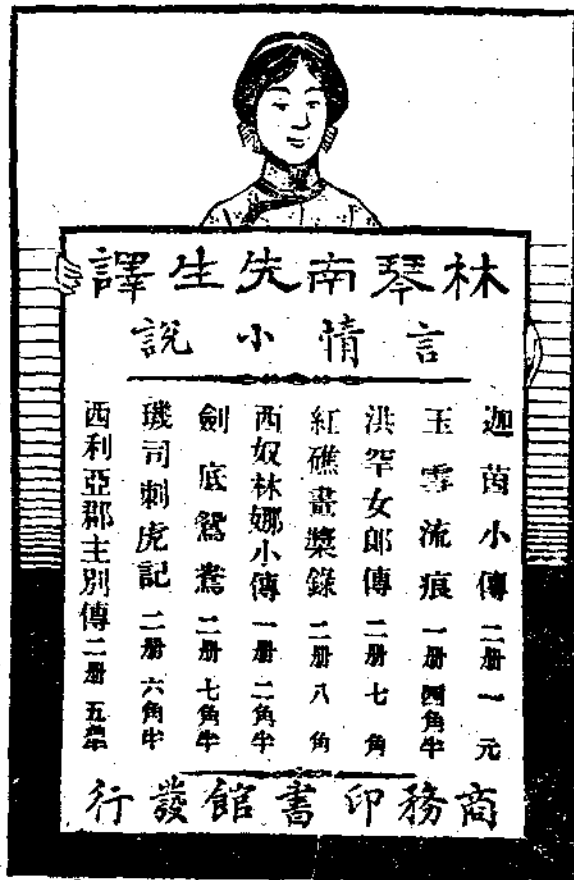 林琴南先生譯
言情小說
迦茵小傳 二册 一元
玉雪流痕 一册 四角半
洪罕女郎傳 二册 七角
紅礁畫槳錄 二册 八角
西奴林娜小傳 一册 二角半
劍底鴛鴦 二册 七角半
璣司刺虎記 二册 六角半
西利亞郡主別傳 二册 五
商務印書館發行